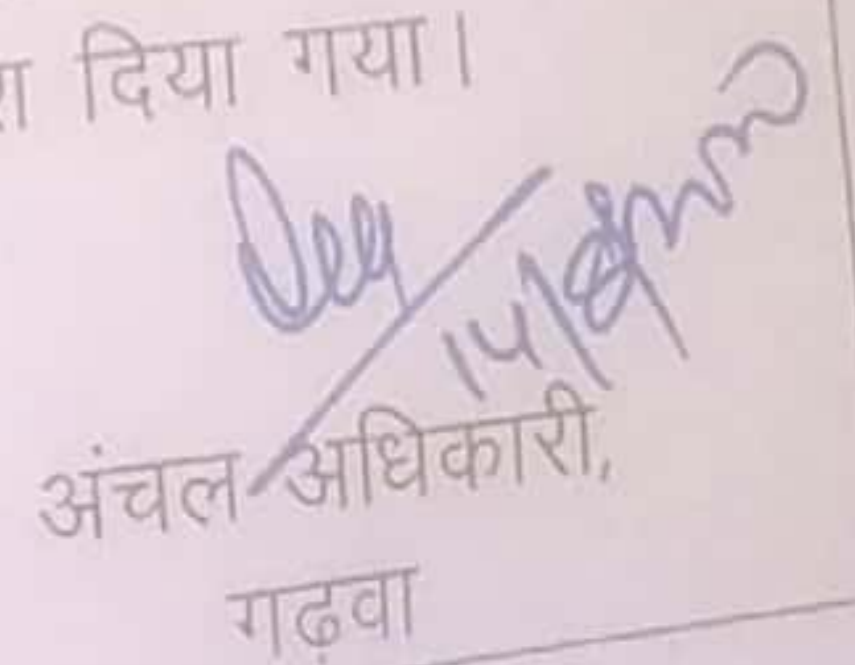 दिया गया।
14/
अंचल अधिकारी,
गढ़वा